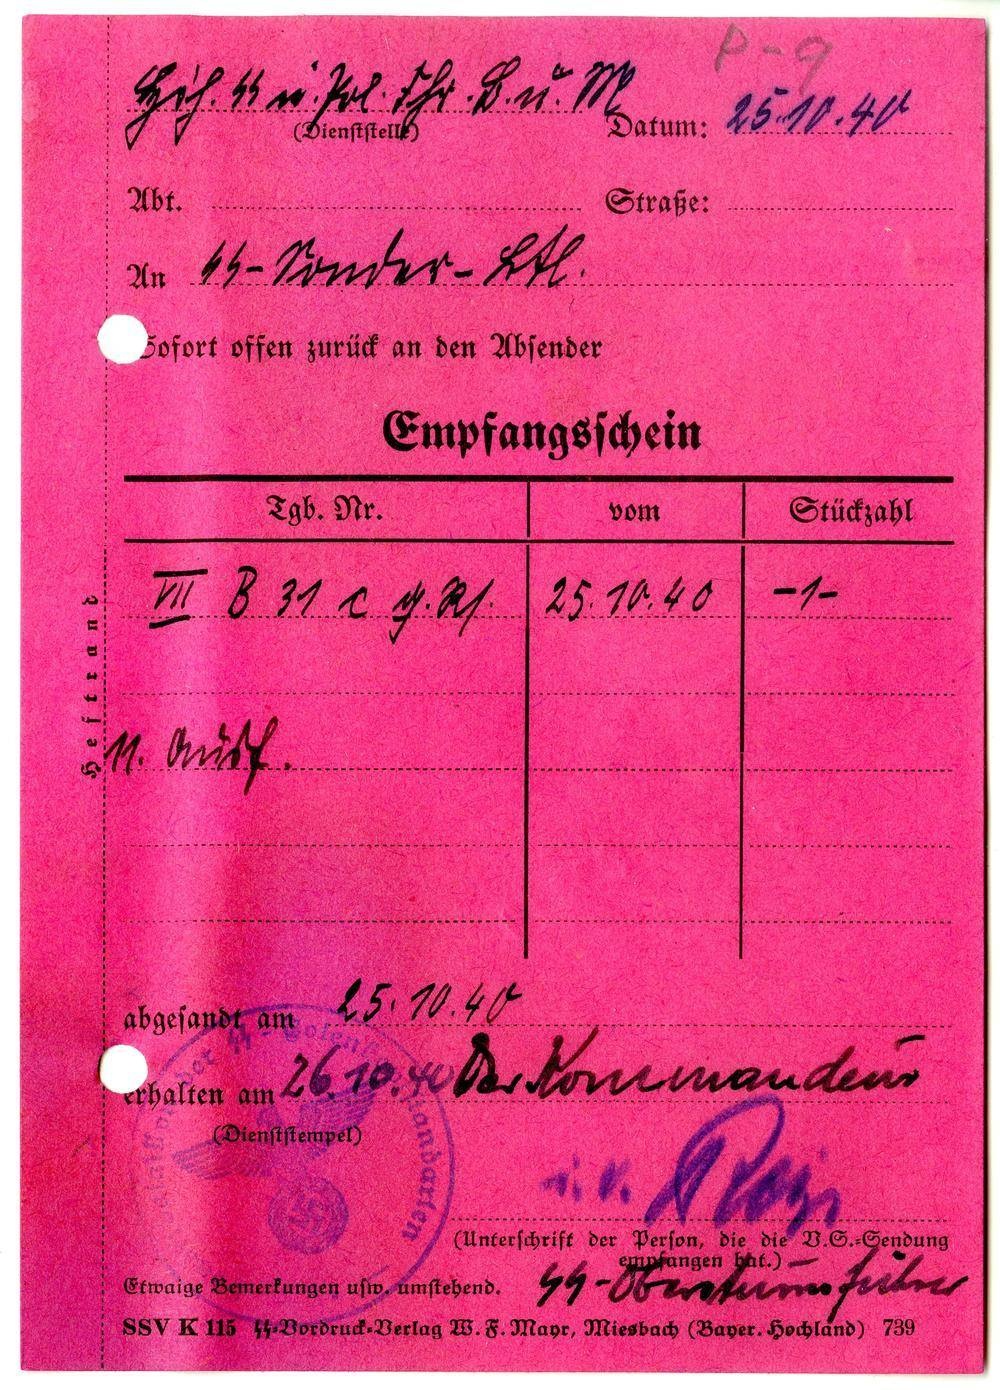 P-9
Höh. SS u. Pol. Fhr. B. u. M
(Dienststelle) Datum: 25.10.40
Abt. Straße:
An SS-Sonder-Btl.
Sofort offen zurück an den Absender
Empfangsschein
Tgb. Nr. vom Stückzahl
VII B 31 c g. Rs. 25.10.40 -1-
11. Ausf.
Heftrand
abgesandt am 25.10.40
erhalten am 26.10.40 Der Kommandeur
(Dienststempel)
i. V.
(Unterschrift der Person, die die V.S.-Sendung
empfangen hat.)
Etwaige Bemerkungen usw. umstehend. SS-Obersturmführer
SSV K 115 SS-Vordruck-Verlag W. F. Mayr, Miesbach (Bayer. Hochland) 739
der SS-Totenkopfstandarten